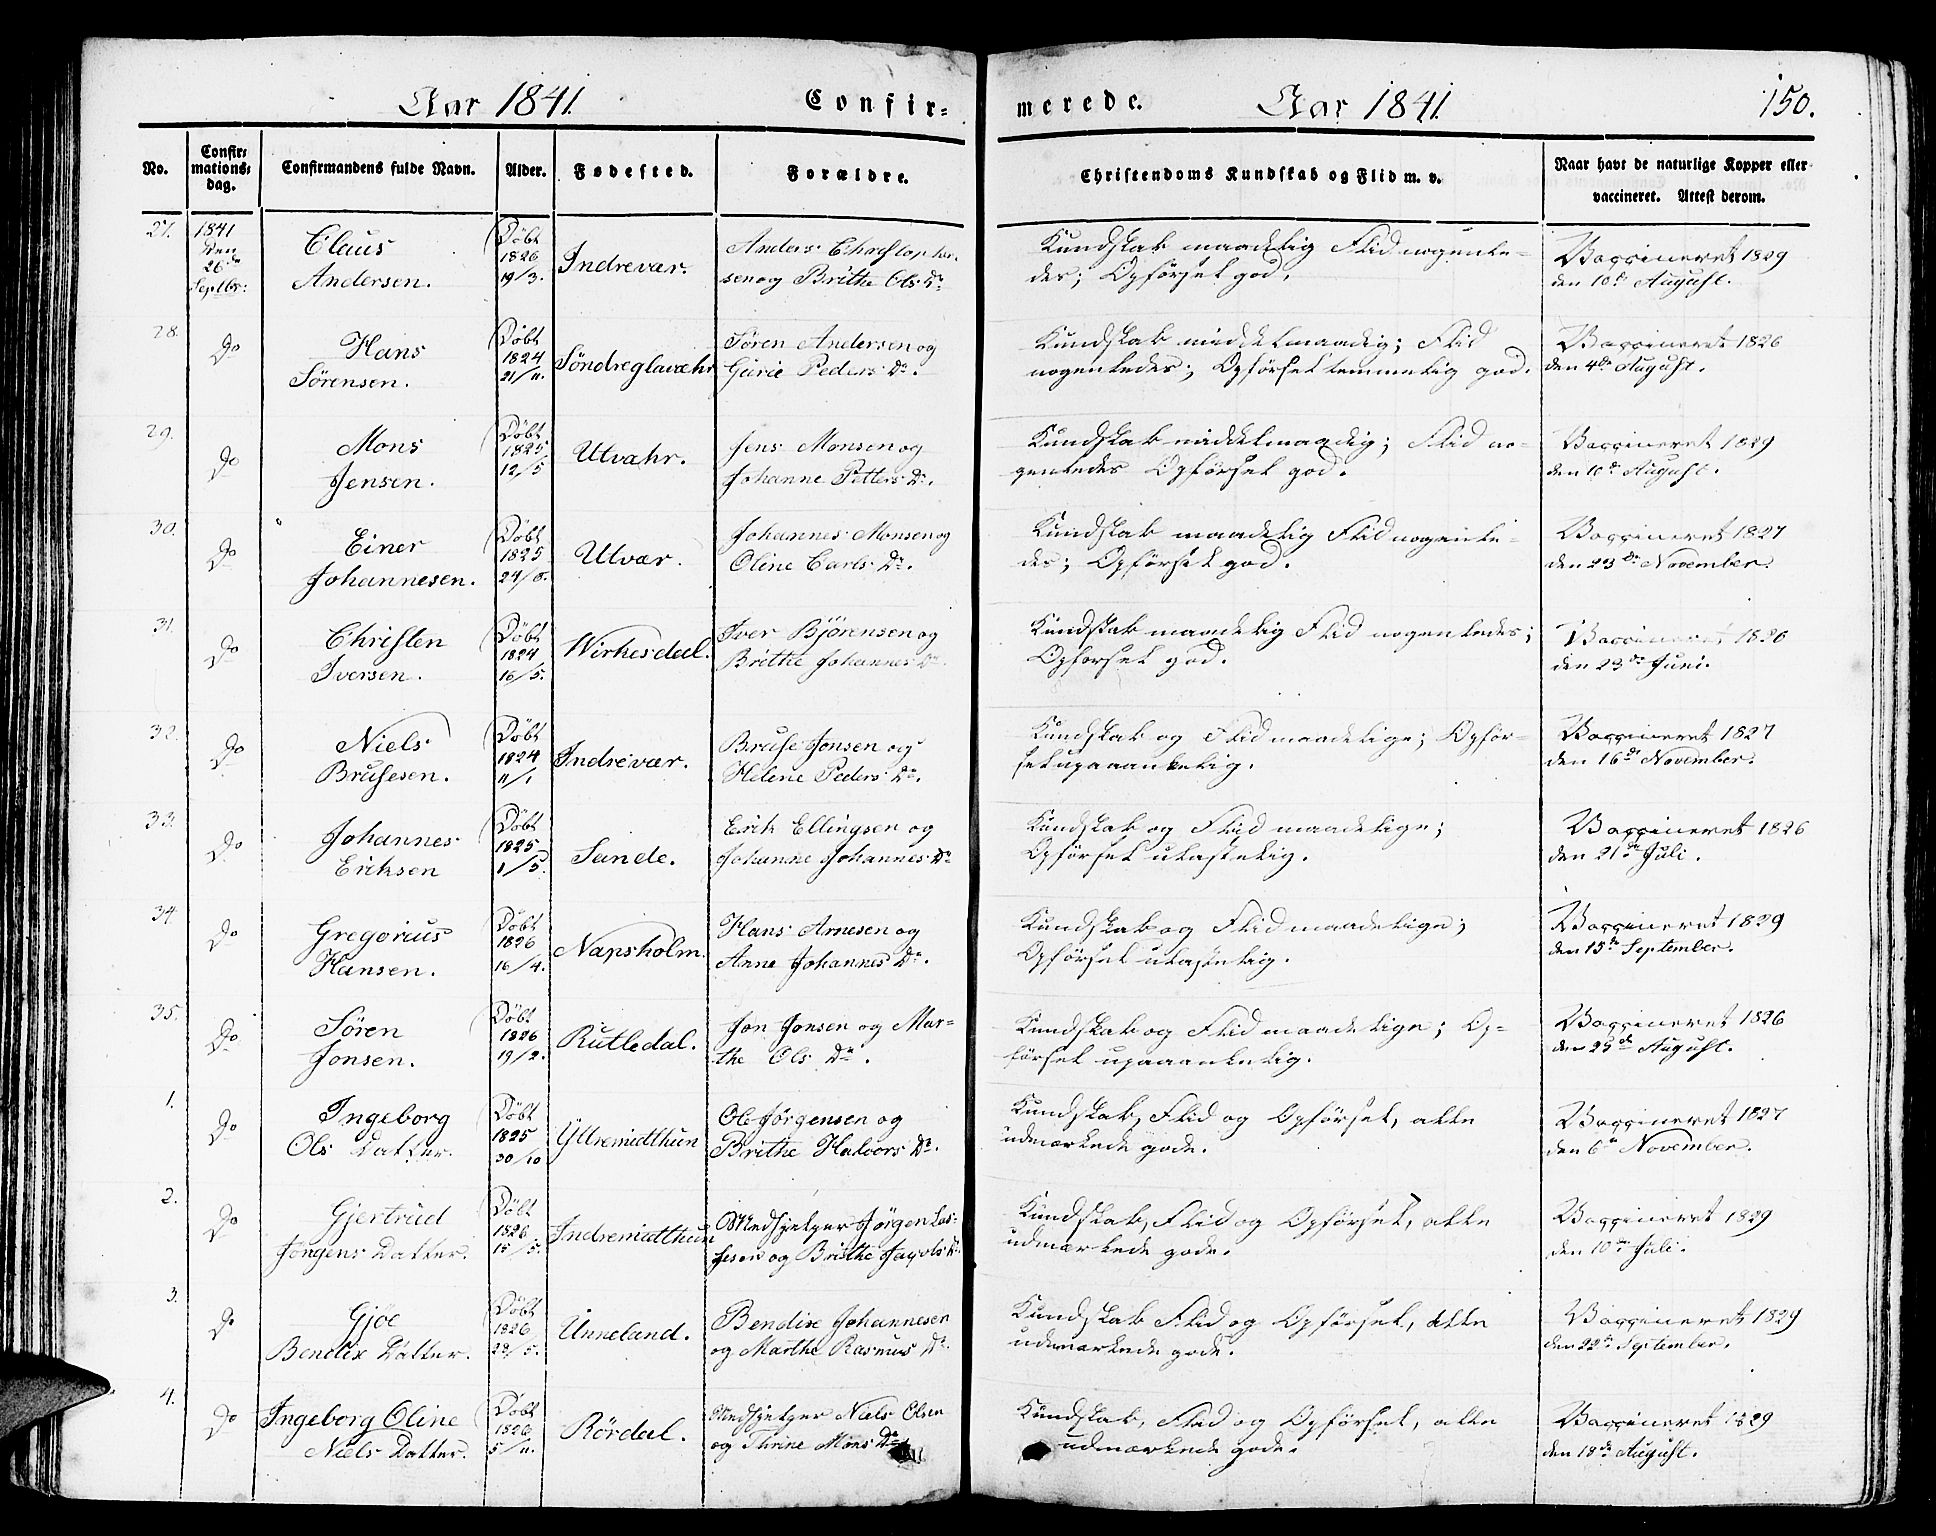 Aar 1841. Confir= merede. Aar 1841. 150.
No.
Confir=
mations=
dag.
Confirmandens fulde Navn.
Alder.
Fødested.
Forældre.
Christendoms Kundskab og Flid m. v.
Naar havt de naturlige Kopper eller
vaccineret. Attest derom.
27.
1841
Den
26de
Septbr:
Claus
Andersen.
Döbt
1826
19/3.
Indrevær.
Anders Christophersen
og Brithe Ols Dr.
Kundskab maadelig Flid nogenle=
des; Opförsel god.
Vaccineret 1829
den 10de August.
28.
Do
Hans
Sörensen.
Döbt
1824
21/11.
Söndreglavæhr
Sören Andersen og
Gurie Peders Dr.
Kundskab middelmaadig; Flid
nogenledes; Opförsel temmelig god.
Vaccineret 1826
den 4de August.
29.
Do
Mons
Jensen.
Döbt
1825
12/5
Utvæhr.
Jens Monsen og
Johanne Petters Dr.
Kundskab middelmaadig; Flid no=
genledes Opförsel god.
Vaccineret 1829
den 10de August.
30.
Do
Einer
Johannesen.
Döbt
1825
Utvær.
Johannes Monsen og
Oline Carls Dr.
Kundskab maadelig Flid nogenle=
des; Opförsel god.
Vaccineret 1827
den 23de November.
31.
Do
Christen
Iversen.
Döbt
1824
16/5.
Wirkesdal.
Iver Björensen og
Brithe Johannes Dr.
Kundskab maadelig Flid nogenledes;
Opförsel god.
Vaccineret 1826
den 23de Juni.
32.
Do
Niels
Brusesen.
Döbt
1824
11/1.
Indrevær.
Bruse Jonsen og
Helene Peders Dr.
Kundskab og Flid maadelige; Opför=
sel upaaankelig.
Vaccineret 1827
den 16de November.
33.
Do
Johannes
Eriksen
Döbt
1825
1/5.
Sande.
Erik Ellingsen og
Johanne Johannes Dr
Kundskab og Flid maadelige;
Opförsel ulastelig.
Vaccineret 1826
den 21de Juli.
34.
Do
Gregorius
Hansen.
Döbt
1826
16/4.
Napsholm.
Hans Arnesen og
Anne Johannes Dr.
Kundskab og Flid maadelige;
Opförsel ulastelig.
Vaccineret 1829
den 15de September.
35.
Do
Sören
Jonsen.
Döbt
1826
19/2.
Rutledal.
Jon Jonsen og Mar=
the Ols Dr.
Kundskab og Flid maadelige; Op=
försel upaaankelig.
Vaccineret 1826
den 25de August.
1.
Do
Ingeborg
Ols Datter.
Döbt
1825
30/10
Yttremidthun
Ole Jörgensen og
Brithe Halvors Dr.
Kundskab, Flid og Opförsel, alle
udmærkede gode.
Vaccineret 1827
den 6te November.
2.
Do
Gjertrud
Jörgens Datter.
Döbt
1826
15/5.
Indremidthun
Medhjelper Jörgen Las=
sesen og Brithe Jacobs Dr.
Kundskab, Flid og Opförsel, alle
udmærkede gode.
Vaccineret 1829
den 10de Juli.
3.
Do
Gjöe
Bendix Datter.
Döbt
1826
Unneland.
Bendix Johannesen
og Marthe Rasmus Dr.
Kundskab Flid og Opförsel, alle
udmærkede gode.
Vaccineret 1829
den 22de September.
4.
Do
Ingeborg Oline
Niels Datter.
Döbt
1826
5/11.
Rördal.
Medhjelper Niels Olsen
og Thrine Mons Dr
Kundskab, Flid og Opförsel, alle
udmærkede gode.
Vaccineret 1829
den 18de August.